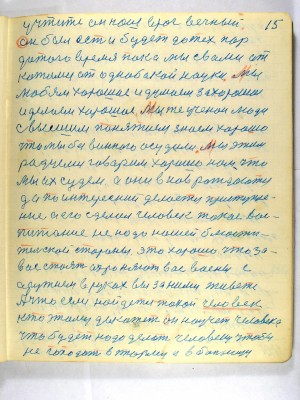 учтите он наш враг вечный 15
он был есть и будет до тех пор
до того время пока мы с вами от
от однобокой науки. Мы
любим хорошее и думаем за хорошое
и делаем хорошое. Мы же ученои люди
с высшим понятием знаем хорошо
что мы бы виннова осудили. Мы этим
говорим хорошо нам что
мы их судем. а они
да по интересний делается преступле
ние а его сделал человек такое вос-
питание не надо нашей
тельской стороны, это хорошо что за
вас стоят охроняют вас
оружием в руках вы за ними живете
А что если найдется такой человек
кто этому докажет он научет человека
что будет надо делать человеку чтобы
не попадать в тюрму а в больницу